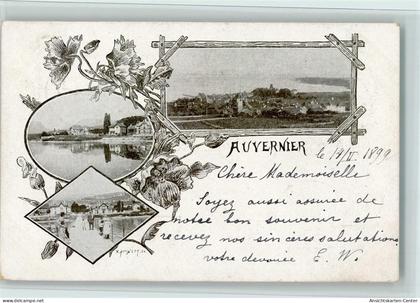 AUVERNIER
le 14/II 1899
Chère Mademoiselle
Soyez aussi assurée de
notre bon souvenir et
recevez nos sincères salutations
votre dévouée E. W.
Ansichtskarten-Center